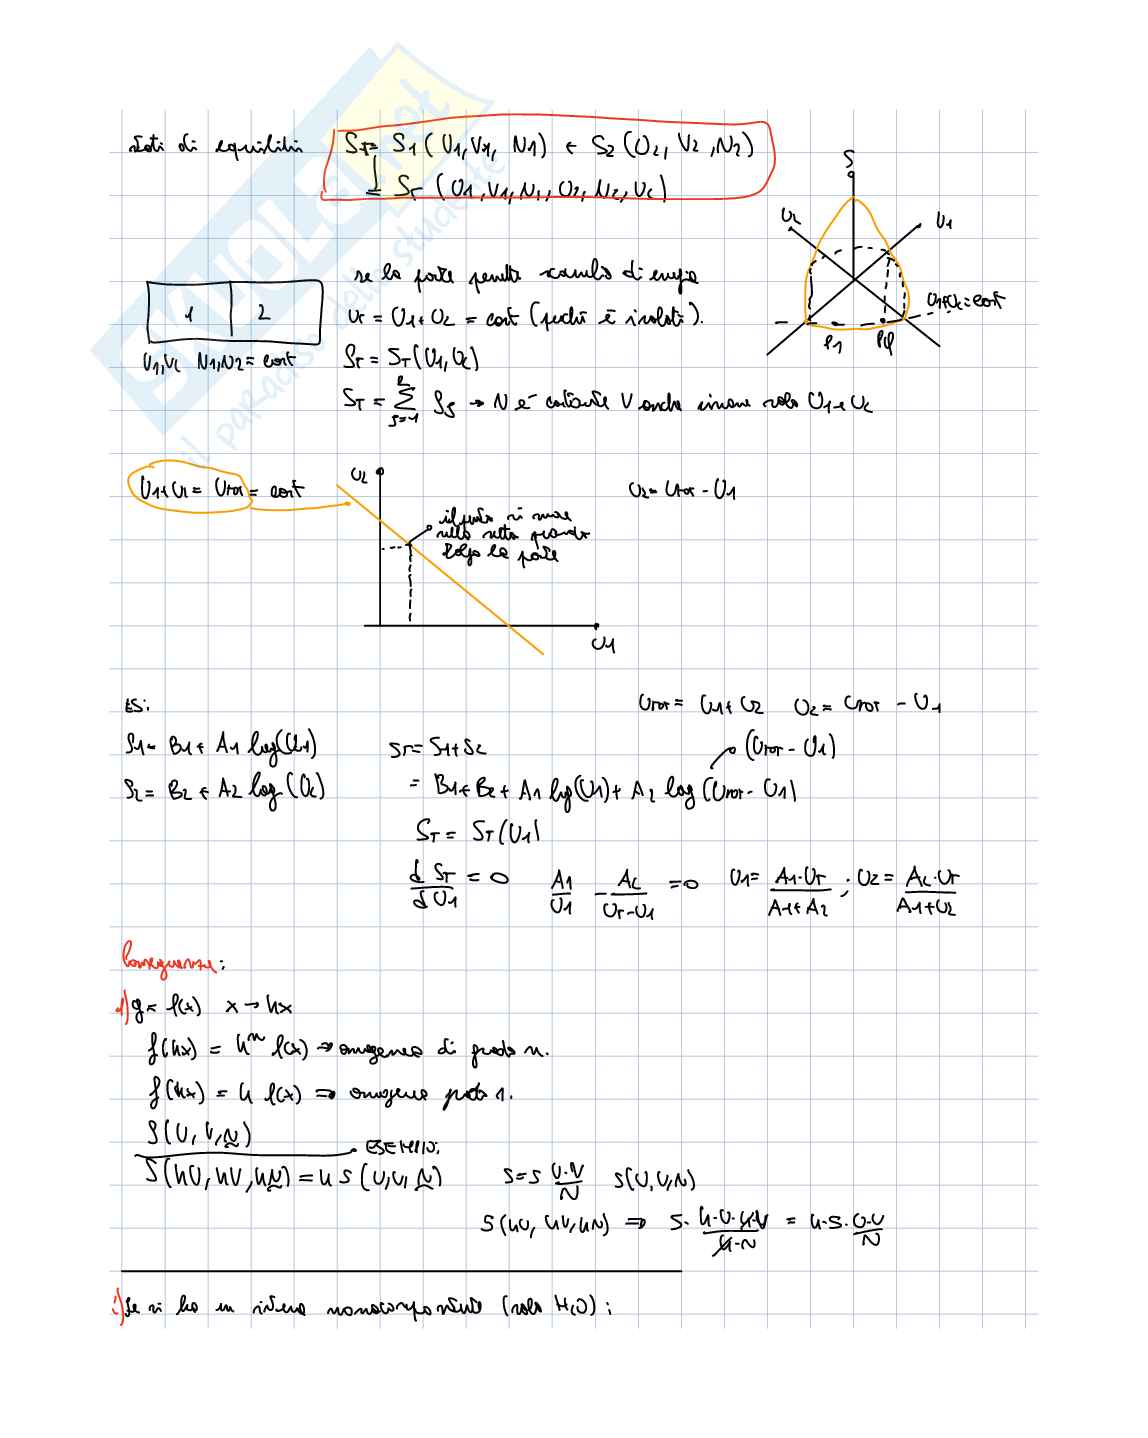 stati di equilibrio S_T = S1 (U1, V1, N1) + S2 (U2, V2, N2)
= S_T (U1, V1, N1, U2, N2, V2)
S
U2
U1
U1+U2 = cost
P1
Pφ
1 2
V1, V2 N1, N2 = cost
se la parete permette scambio di energia
U_T = U1 + U2 = cost (perchè è isolato).
S_T = S_T (U1, U2)
S_T = Σ S_S → N è costante V anche rimane solo U1 e U2
2
S=1
U1+U2 = U_TOT = cost
U2
U2 = U_TOT - U1
il punto si muove
sulla retta quando
tolgo la parete
U1
ES:
U_TOT = U1 + U2 U2 = U_TOT - U1
S1 = B1 + A1 log(U1)
S_T = S1 + S2
(U_TOT - U1)
S2 = B2 + A2 log(U2)
= B1 + B2 + A1 log(U1) + A2 log(U_TOT - U1)
S_T = S_T(U1)
d S_T / d U1 = 0 A1/U1 - A2/(U_T - U1) = 0 U1 = A1·U_T / (A1+A2) ; U2 = A2·U_T / (A1+U2)
Conseguenze:
1) y = f(x) x → kx
f(kx) = k^n f(x) ⇒ omogenea di grado n.
f(kx) = k f(x) ⇒ omogenea grado 1.
S(U, V, N)
ESEMPIO:
S(kU, kV, kN) = k S (U, V, N) S = s U·V/N S(U, V, N)
S(kU, kV, kN) ⇒ s · k·U·k·V / k·N = k·s· U·V/N
Se si ha un sistema monocomponente (solo H2O) :
SKUOLA.net
il paradiso dello studente